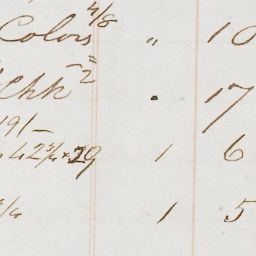 Colors 4/8 " 10
Chk 17
191-
42 3/4 x 29 1 6
1 5